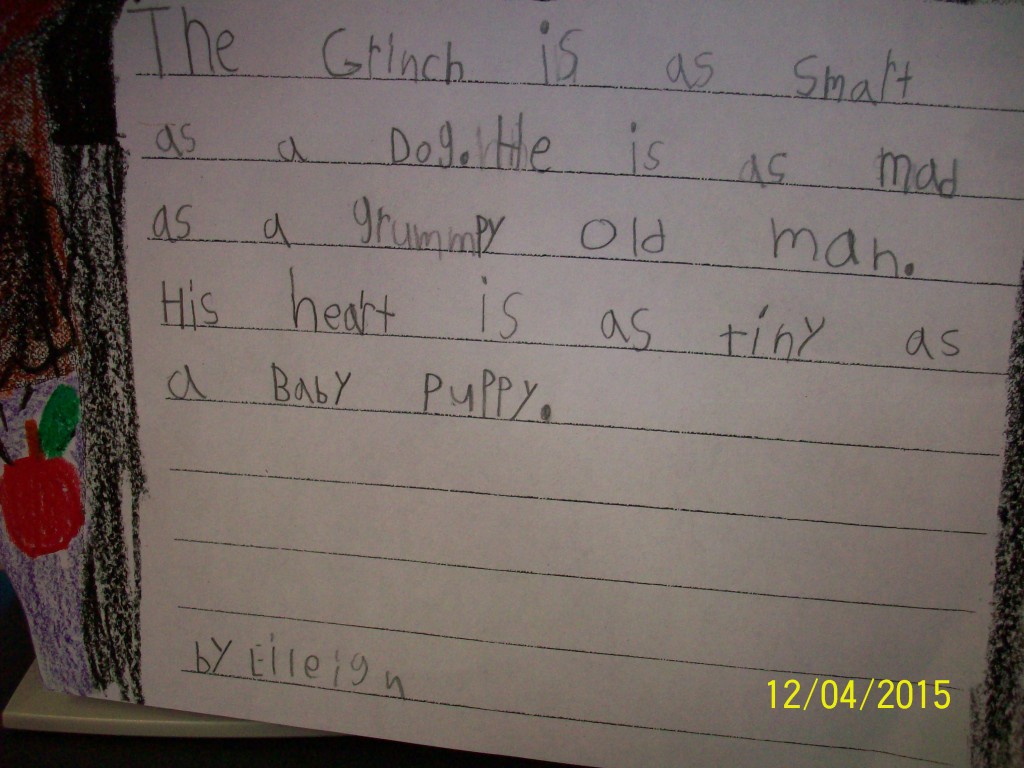 The Grinch is as smart
as a Dog. He is as mad
as a grummpy old man.
His heart is as tiny as
a BaBy puppy.
by Eileign
12/04/2015